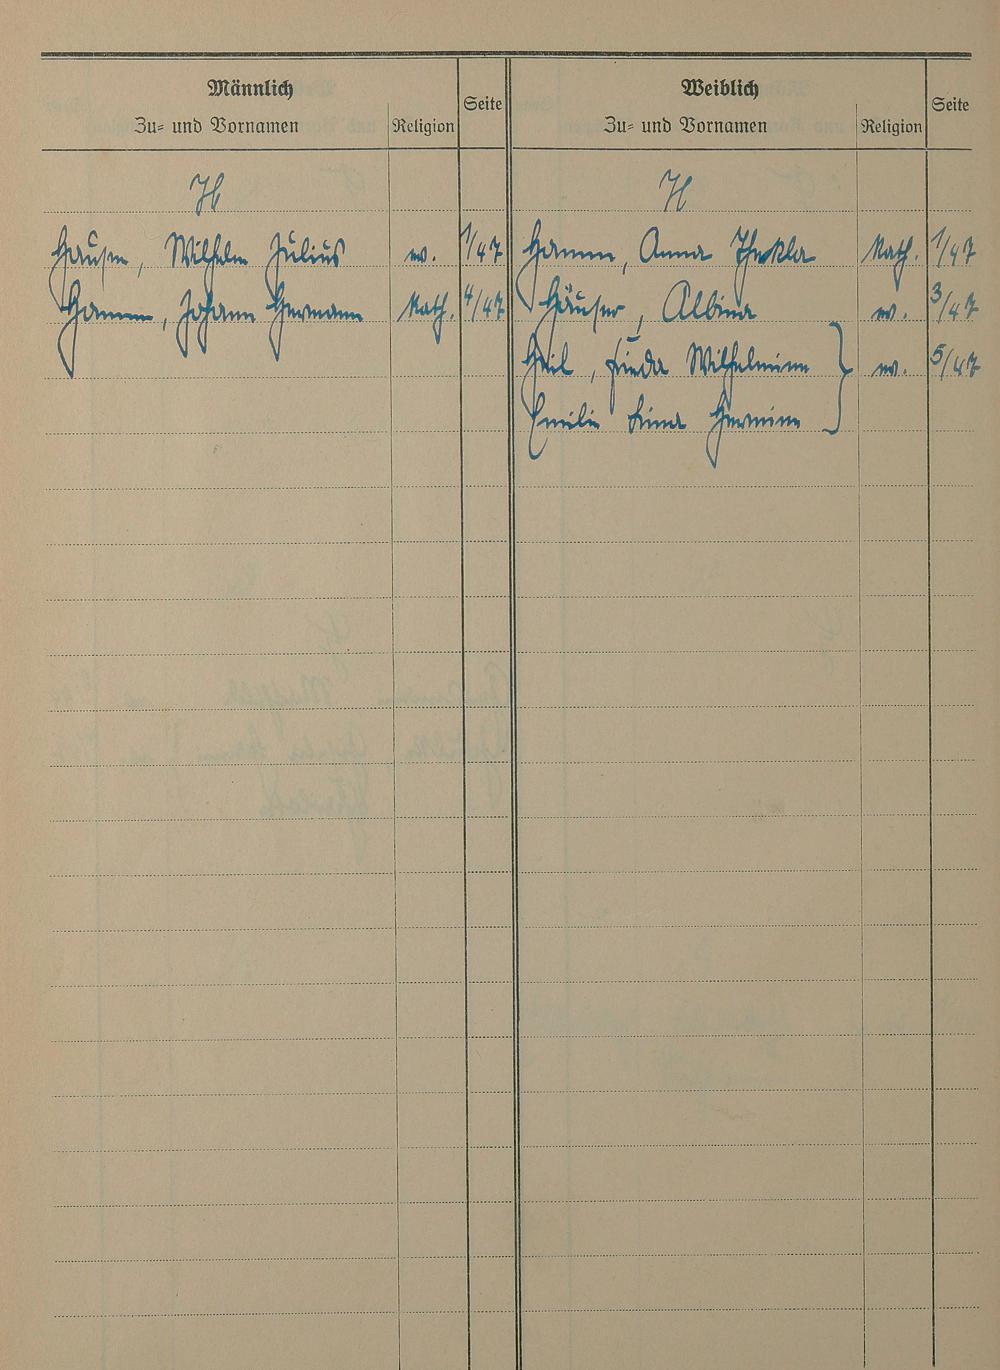 Männlich
Zu- und Vornamen
Religion
Seite
H
Hausen, Wilhelm Julius ev. 1/47
Hamm, Johann Hermann kath. 4/47
Weiblich
Zu- und Vornamen
Religion
Seite
H
Hamm, Anna Thekla kath. 1/47
Häuser, Albina ev. 3/47
Heil, Frieda Wilhelmine ev. 5/47
Emilie Lina Hermine